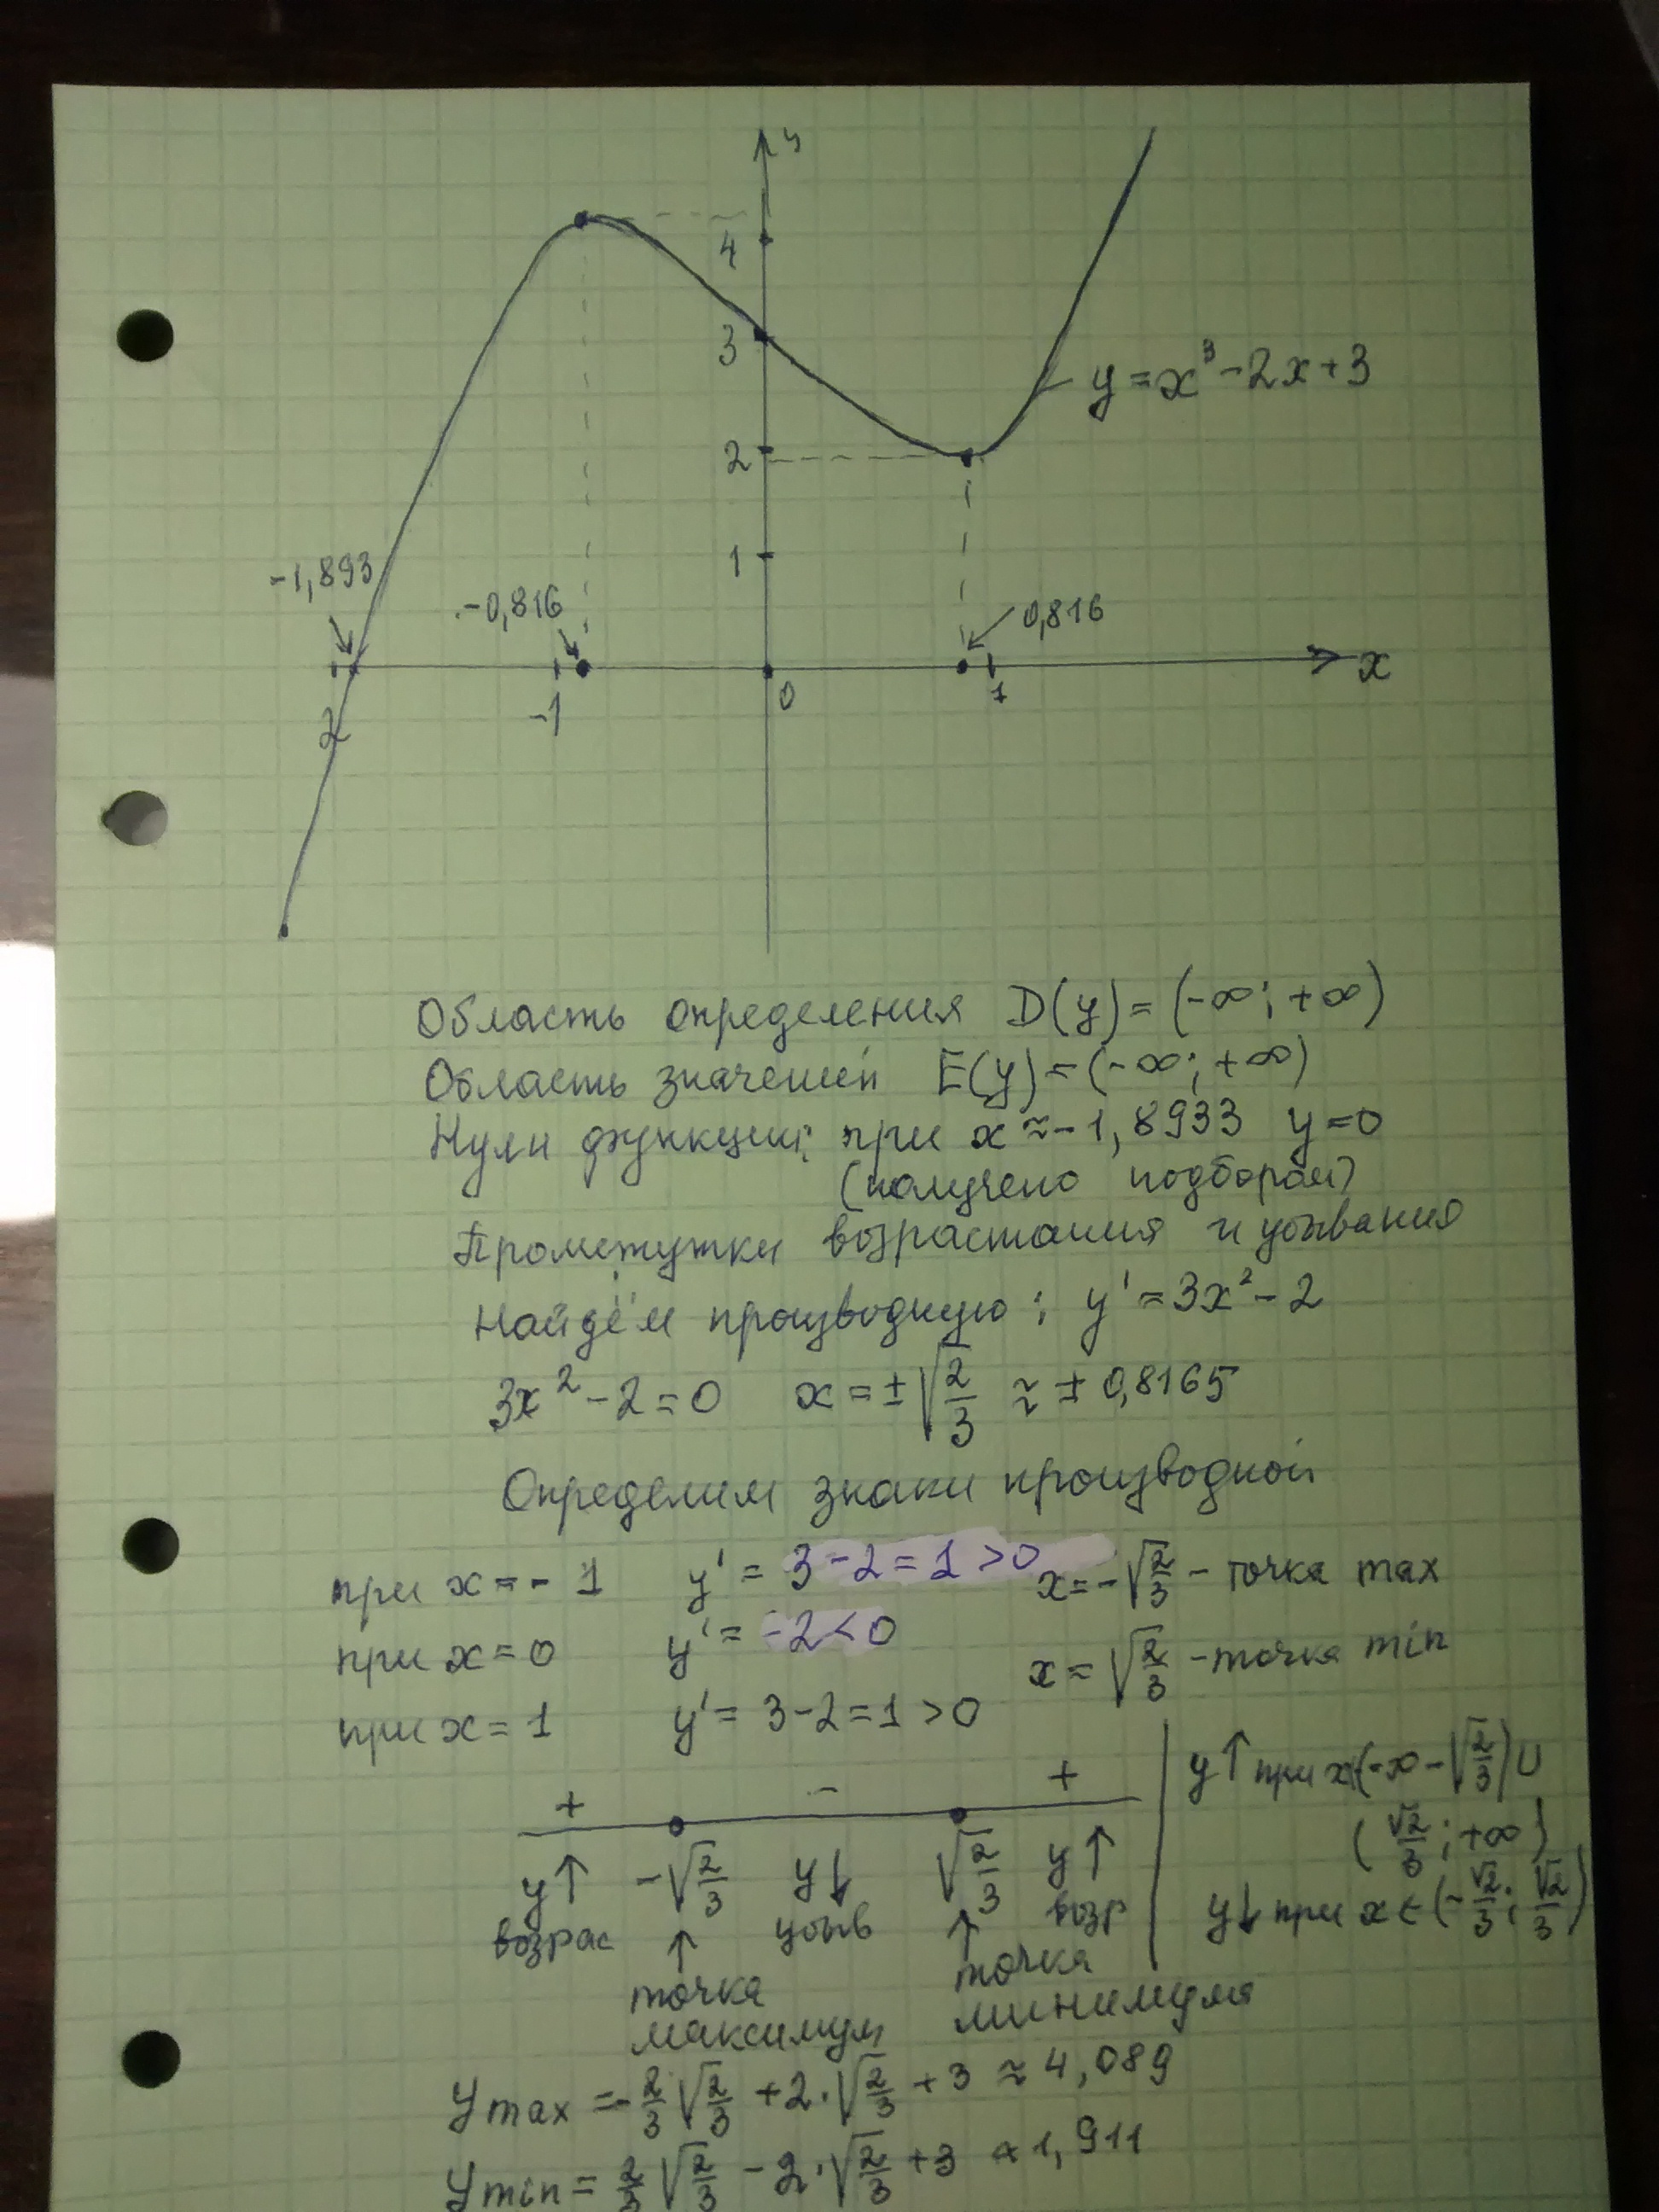 y
4
3
y = x³ - 2x + 3
2
1
-1,893
-0,816
0,816
x
2
-1
0
1
Область определения D(y) = (-∞; +∞)
Область значений E(y) = (-∞; +∞)
Нули функции: при x ≈ -1,8933 y = 0
(получено подбором)
Промежутки возрастания и убывания
Найдём производную: y' = 3x² - 2
3x² - 2 = 0 x = ±√(2/3) ≈ ± 0,8165
Определим знаки производной
при x = - 1 y' = 3 - 2 = 1 > 0 x = -√(2/3) - точка max
при x = 0 y' = -2 < 0 x = √(2/3) - точка min
при x = 1 y' = 3 - 2 = 1 > 0
+ - +
y↑ -√(2/3) y↓ √(2/3) y↑
возрас ↑ убыв ↑ возр
точка максимум
точка минимума
y↑ при x (-∞ -√(2/3)) ∪
(√2/3; +∞)
y↓ при x ∈ (-√2/3; √2/3)
y max = -2/3 √(2/3) + 2·√(2/3) + 3 ≈ 4,089
y min = 2/3 √(2/3) - 2·√(2/3) + 3 ≈ 1,911